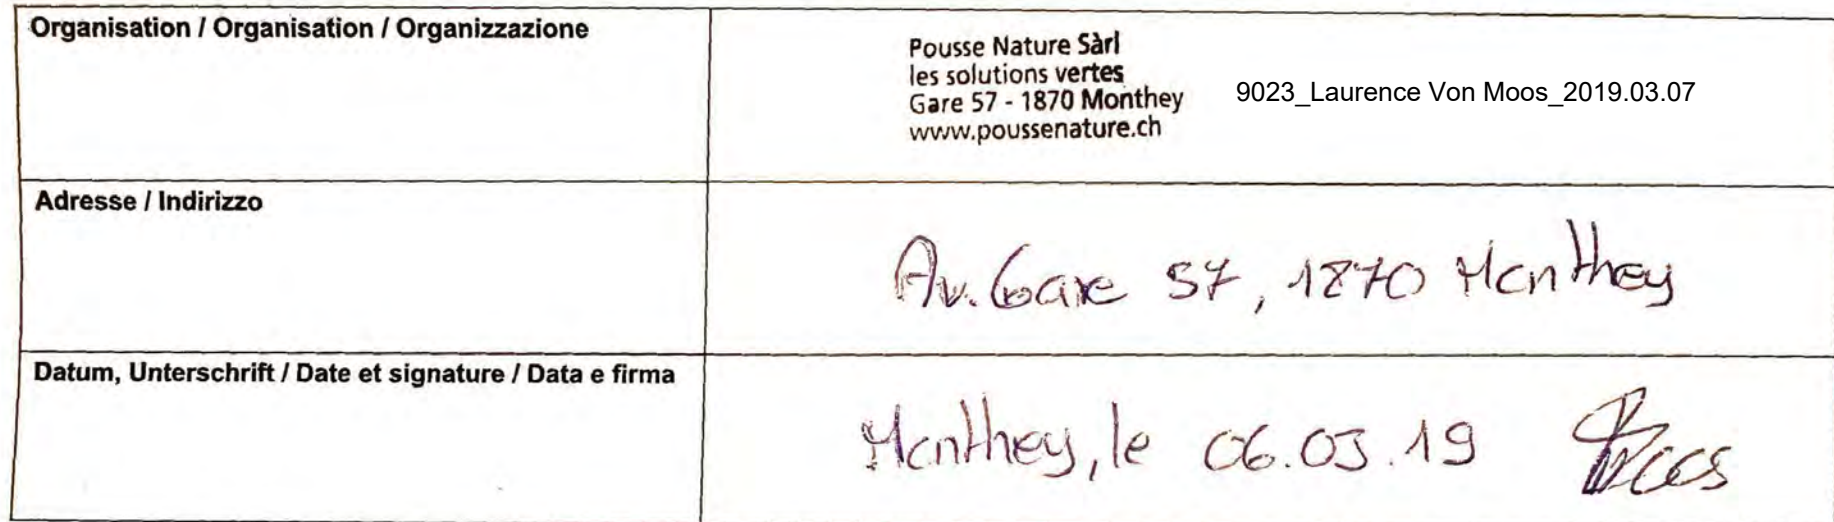 Organisation / Organisation / Organizzazione
Pousse Nature Sàrl
les solutions vertes
Gare 57 - 1870 Monthey
www.poussenature.ch
9023_Laurence Von Moos_2019.03.07
Adresse / Indirizzo
Av. Gare 57, 1870 Monthey
Datum, Unterschrift / Date et signature / Data e firma
Monthey, le 06.03.19